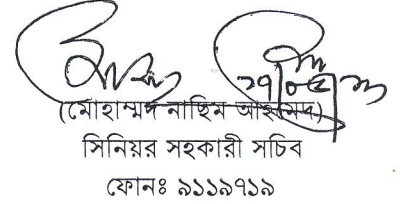 (মোহাম্মদ নাছিম আহমেদ)
সিনিয়র সহকারী সচিব
ফোনঃ ৯১১৯৭১৯